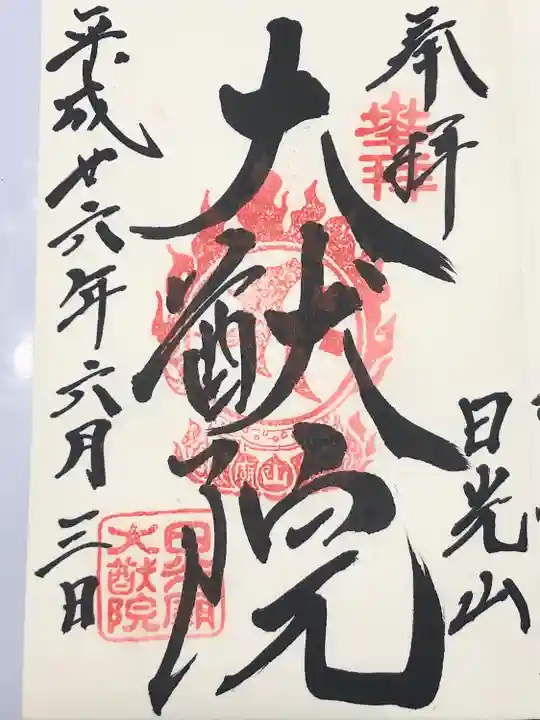 奉拝
日光山
大猷院
平成廿六年六月三日
日光廟
大猷院